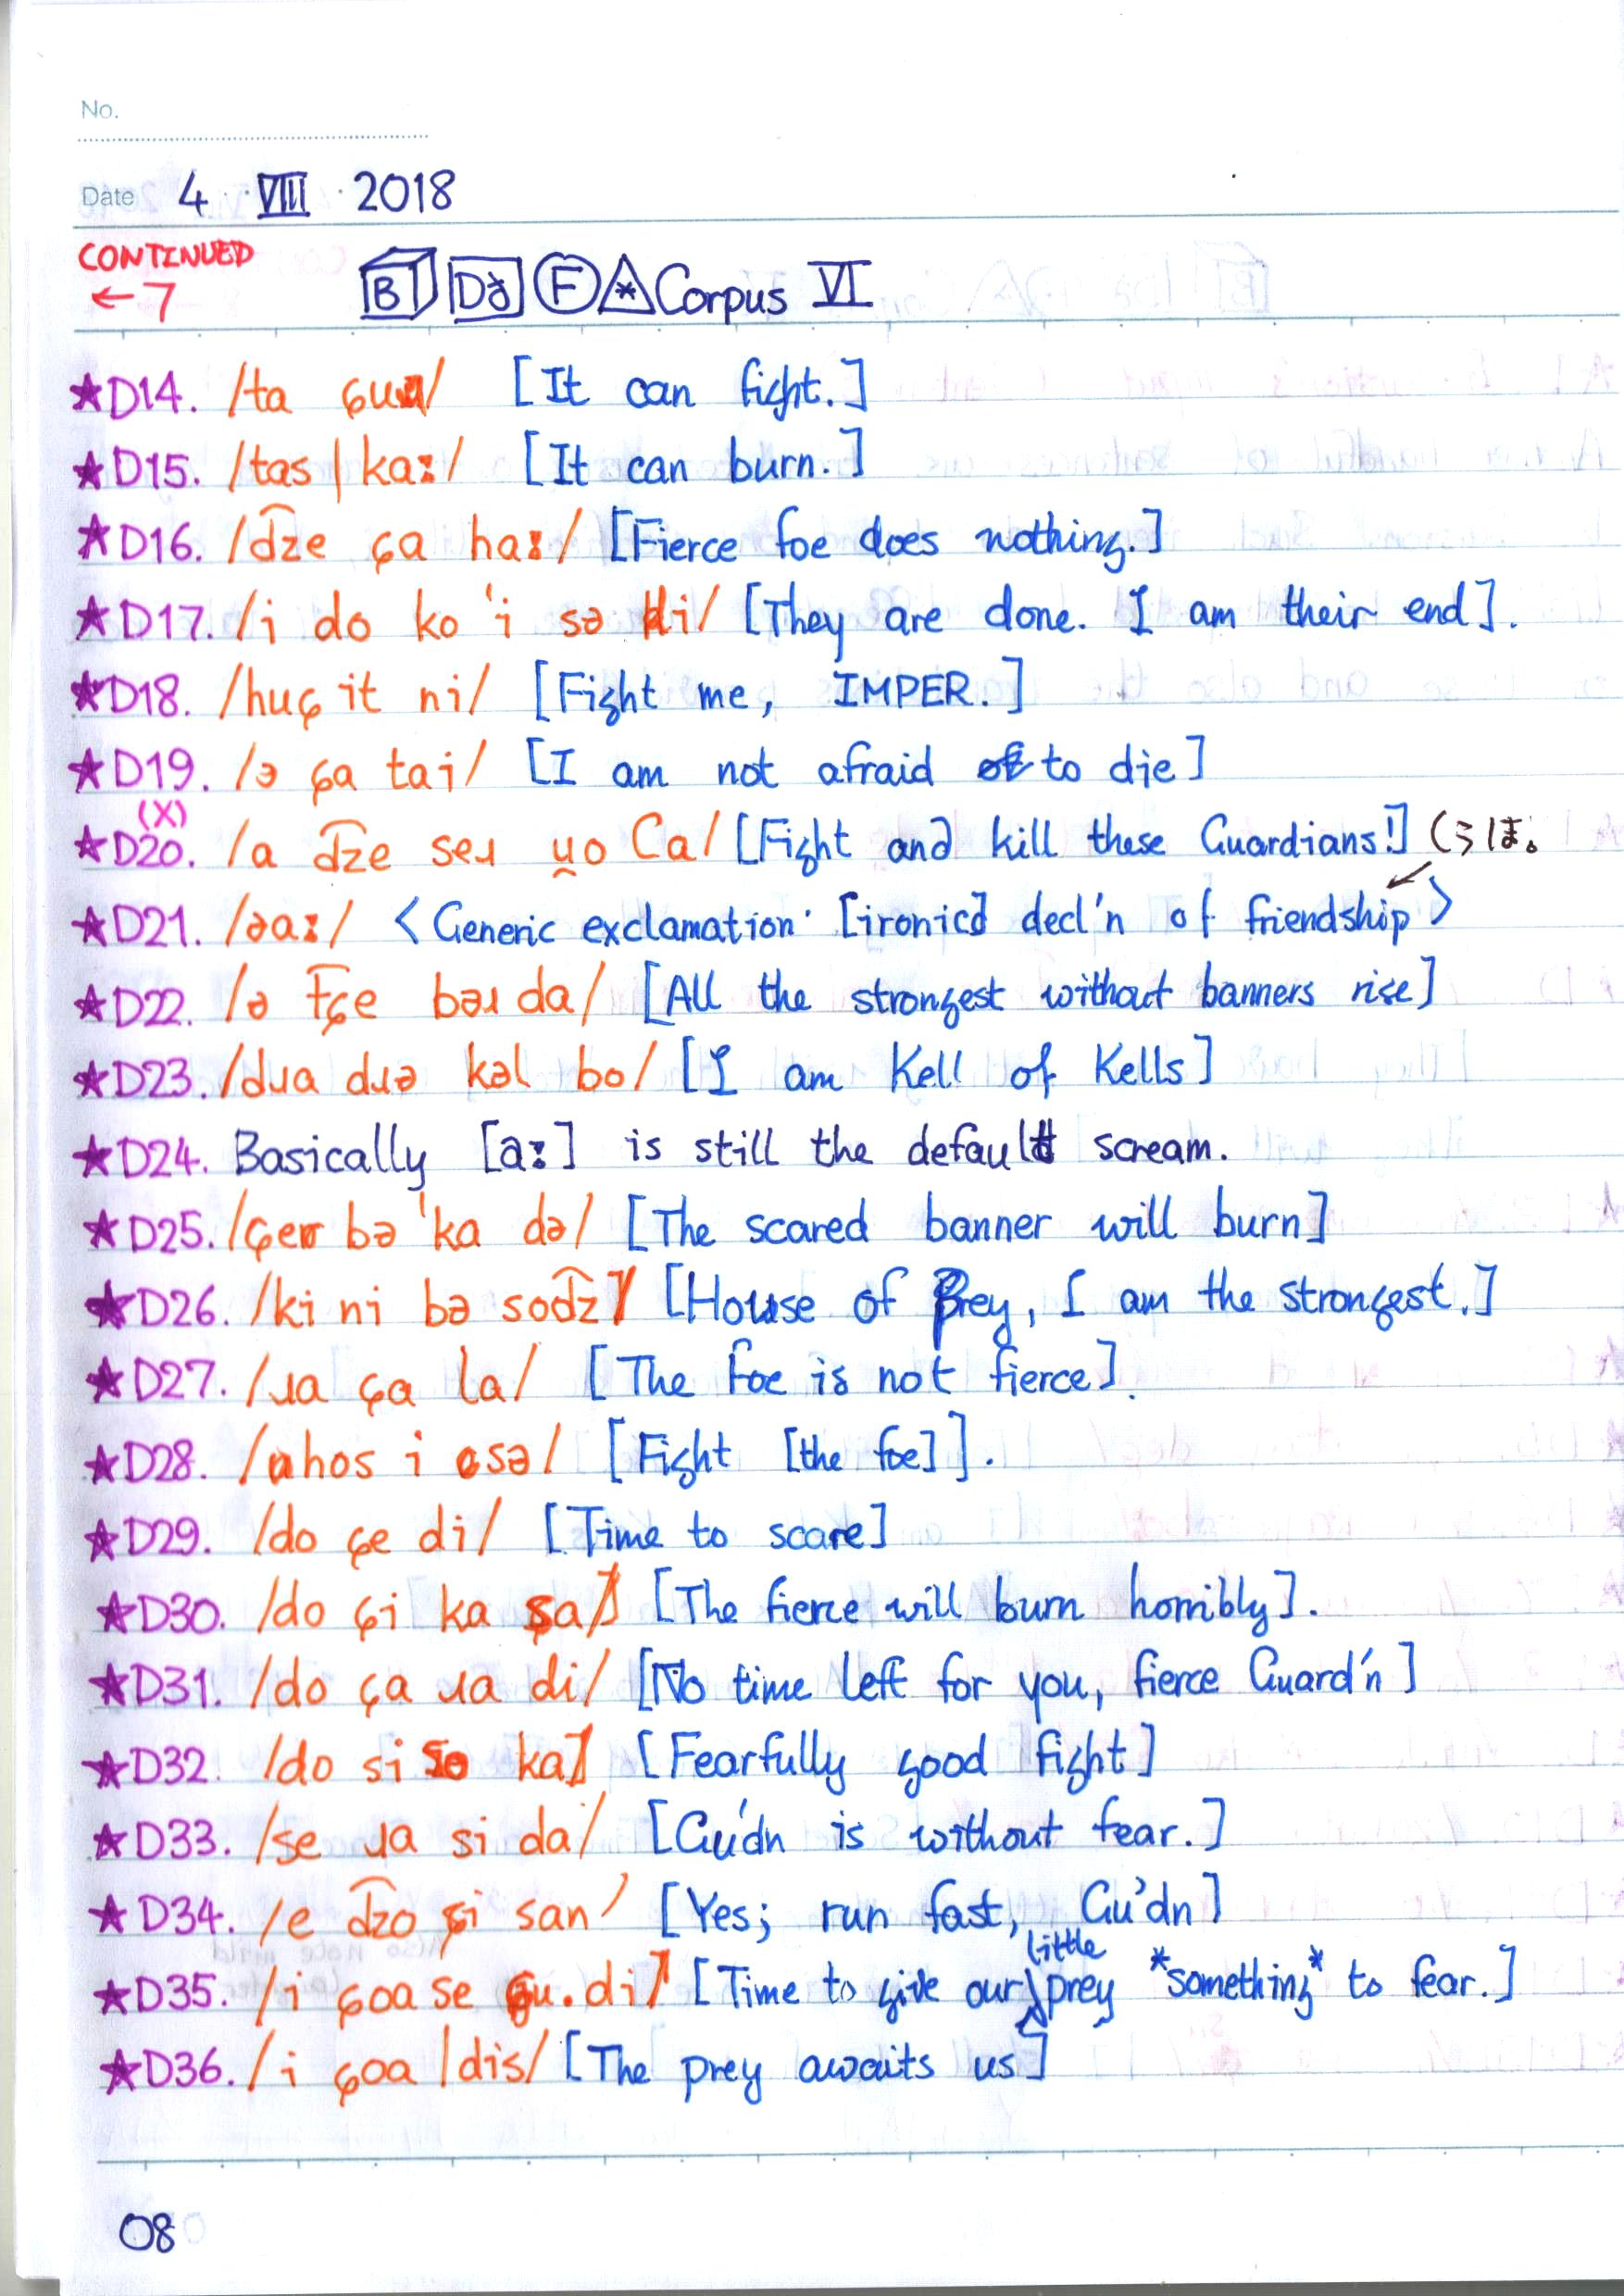 No.
Date 4 · VIII · 2018
CONTINUED
← 7
B Də F * Corpus VI
★D14. /ta ɕuɹ/ [It can fight.]
★D15. /tas | kaː/ [It can burn.]
★D16. /d͡ze ɕa haː/ [Fierce foe does nothing.]
★D17. /i do ko 'i sə di/ [They are done. I am their end].
★D18. /huɕ it ni/ [Fight me, IMPER.]
★D19. /ə ɕa tai/ [I am not afraid to die]
(X)
★D20. /a d͡ze seɹ u̯o Ca/ [Fight and kill these Guardians!]
★D21. /əaː/ <Generic exclamation· [ironic] decl'n of friendship>
★D22. /ə t͡ɕe bəɹ da/ [All the strongest without banners rise]
★D23. /dɹa dɹə kəl bo/ [I am Kell of Kells]
★D24. Basically [aː] is still the default scream.
★D25. /ɕeɹ bə 'ka də/ [The scared banner will burn]
★D26. /ki ni bə sod͡z/ [House of Prey, I am the strongest.]
★D27. /ɹa ɕa la/ [The foe is not fierce].
★D28. /ahos i əsə/ [Fight [the foe]].
★D29. /do ɕe di/ [Time to scare]
★D30. /do ɕi ka sa/ [The fierce will burn horribly].
★D31. /do ɕa ɹa di/ [No time left for you, fierce Guard'n]
★D32. /do si so ka/ [Fearfully good fight]
★D33. /se ɹa si da/ [Gu'dn is without fear.]
★D34. /e d͡zo ɕi san/ [Yes; run fast, Gu'dn]
★D35. /i ɕoa se ɕu.di/ [Time to give our little prey *something* to fear.]
★D36. /i ɕoa |dis/ [The prey awaits us]
08